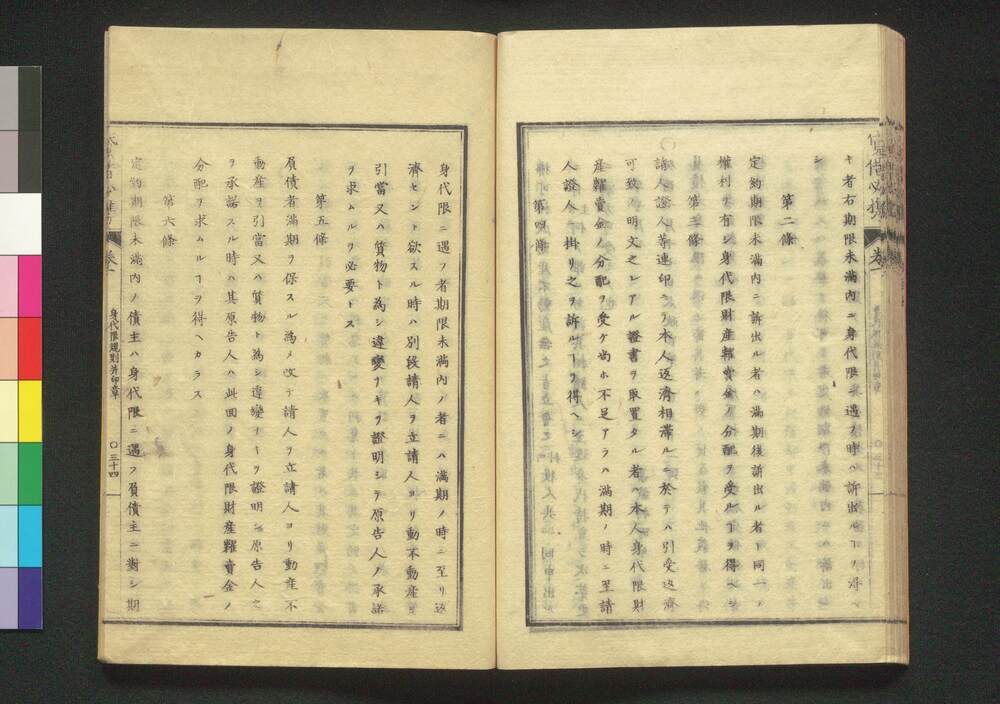 キ者右期限未滿内ニ身代限ニ遇フ時ハ訴出ルヿヲ得ヘ
シ
第二條
定約期限未滿内ニ訴出ル者ハ滿期後訴出ル者ト同一ノ
權利ヲ有シ身代限財産糶賣金ノ分配ヲ受ルヿヲ得ヘシ
第三條
請人證人等連印シテ本人返濟相滯ルニ於テハ引受返濟
可致ノ明文之レアル證書ヲ取置タル者ハ本人身代限財
産糶賣金ノ分配ヲ受ケ尚ホ不足アラハ滿期ノ時ニ至請
人證人ヘ掛リ之ヲ訴ルヿヲ得ヘシ
第四條
身代限ニ遇フ者期限未滿内ノ者ニハ滿期ノ時ニ至リ返
濟セント欲スル時ハ別段請人ヲ立請人ヨリ動不動産ヲ
引當又ハ質物ト爲シ違變ナキヲ證明シテ原告人ノ承諾
ヲ求ムルヲ必要トス
第五條
負債者滿期ヲ保スル爲メ改テ請人ヲ立請人ヨリ動産不
動産ヲ引當又ハ質物ト爲シ違變ナキヲ證明シ原告人之
ヲ承諾スル時ハ其原告人ハ此回ノ身代限財産糶賣金ノ
分配ヲ求ムルヿヲ得ヘカラス
第六條
定約期限未滿内ノ債主ハ身代限ニ遇フ負債主ニ對シ期
卷一
身代限規則并印章
〇三十四